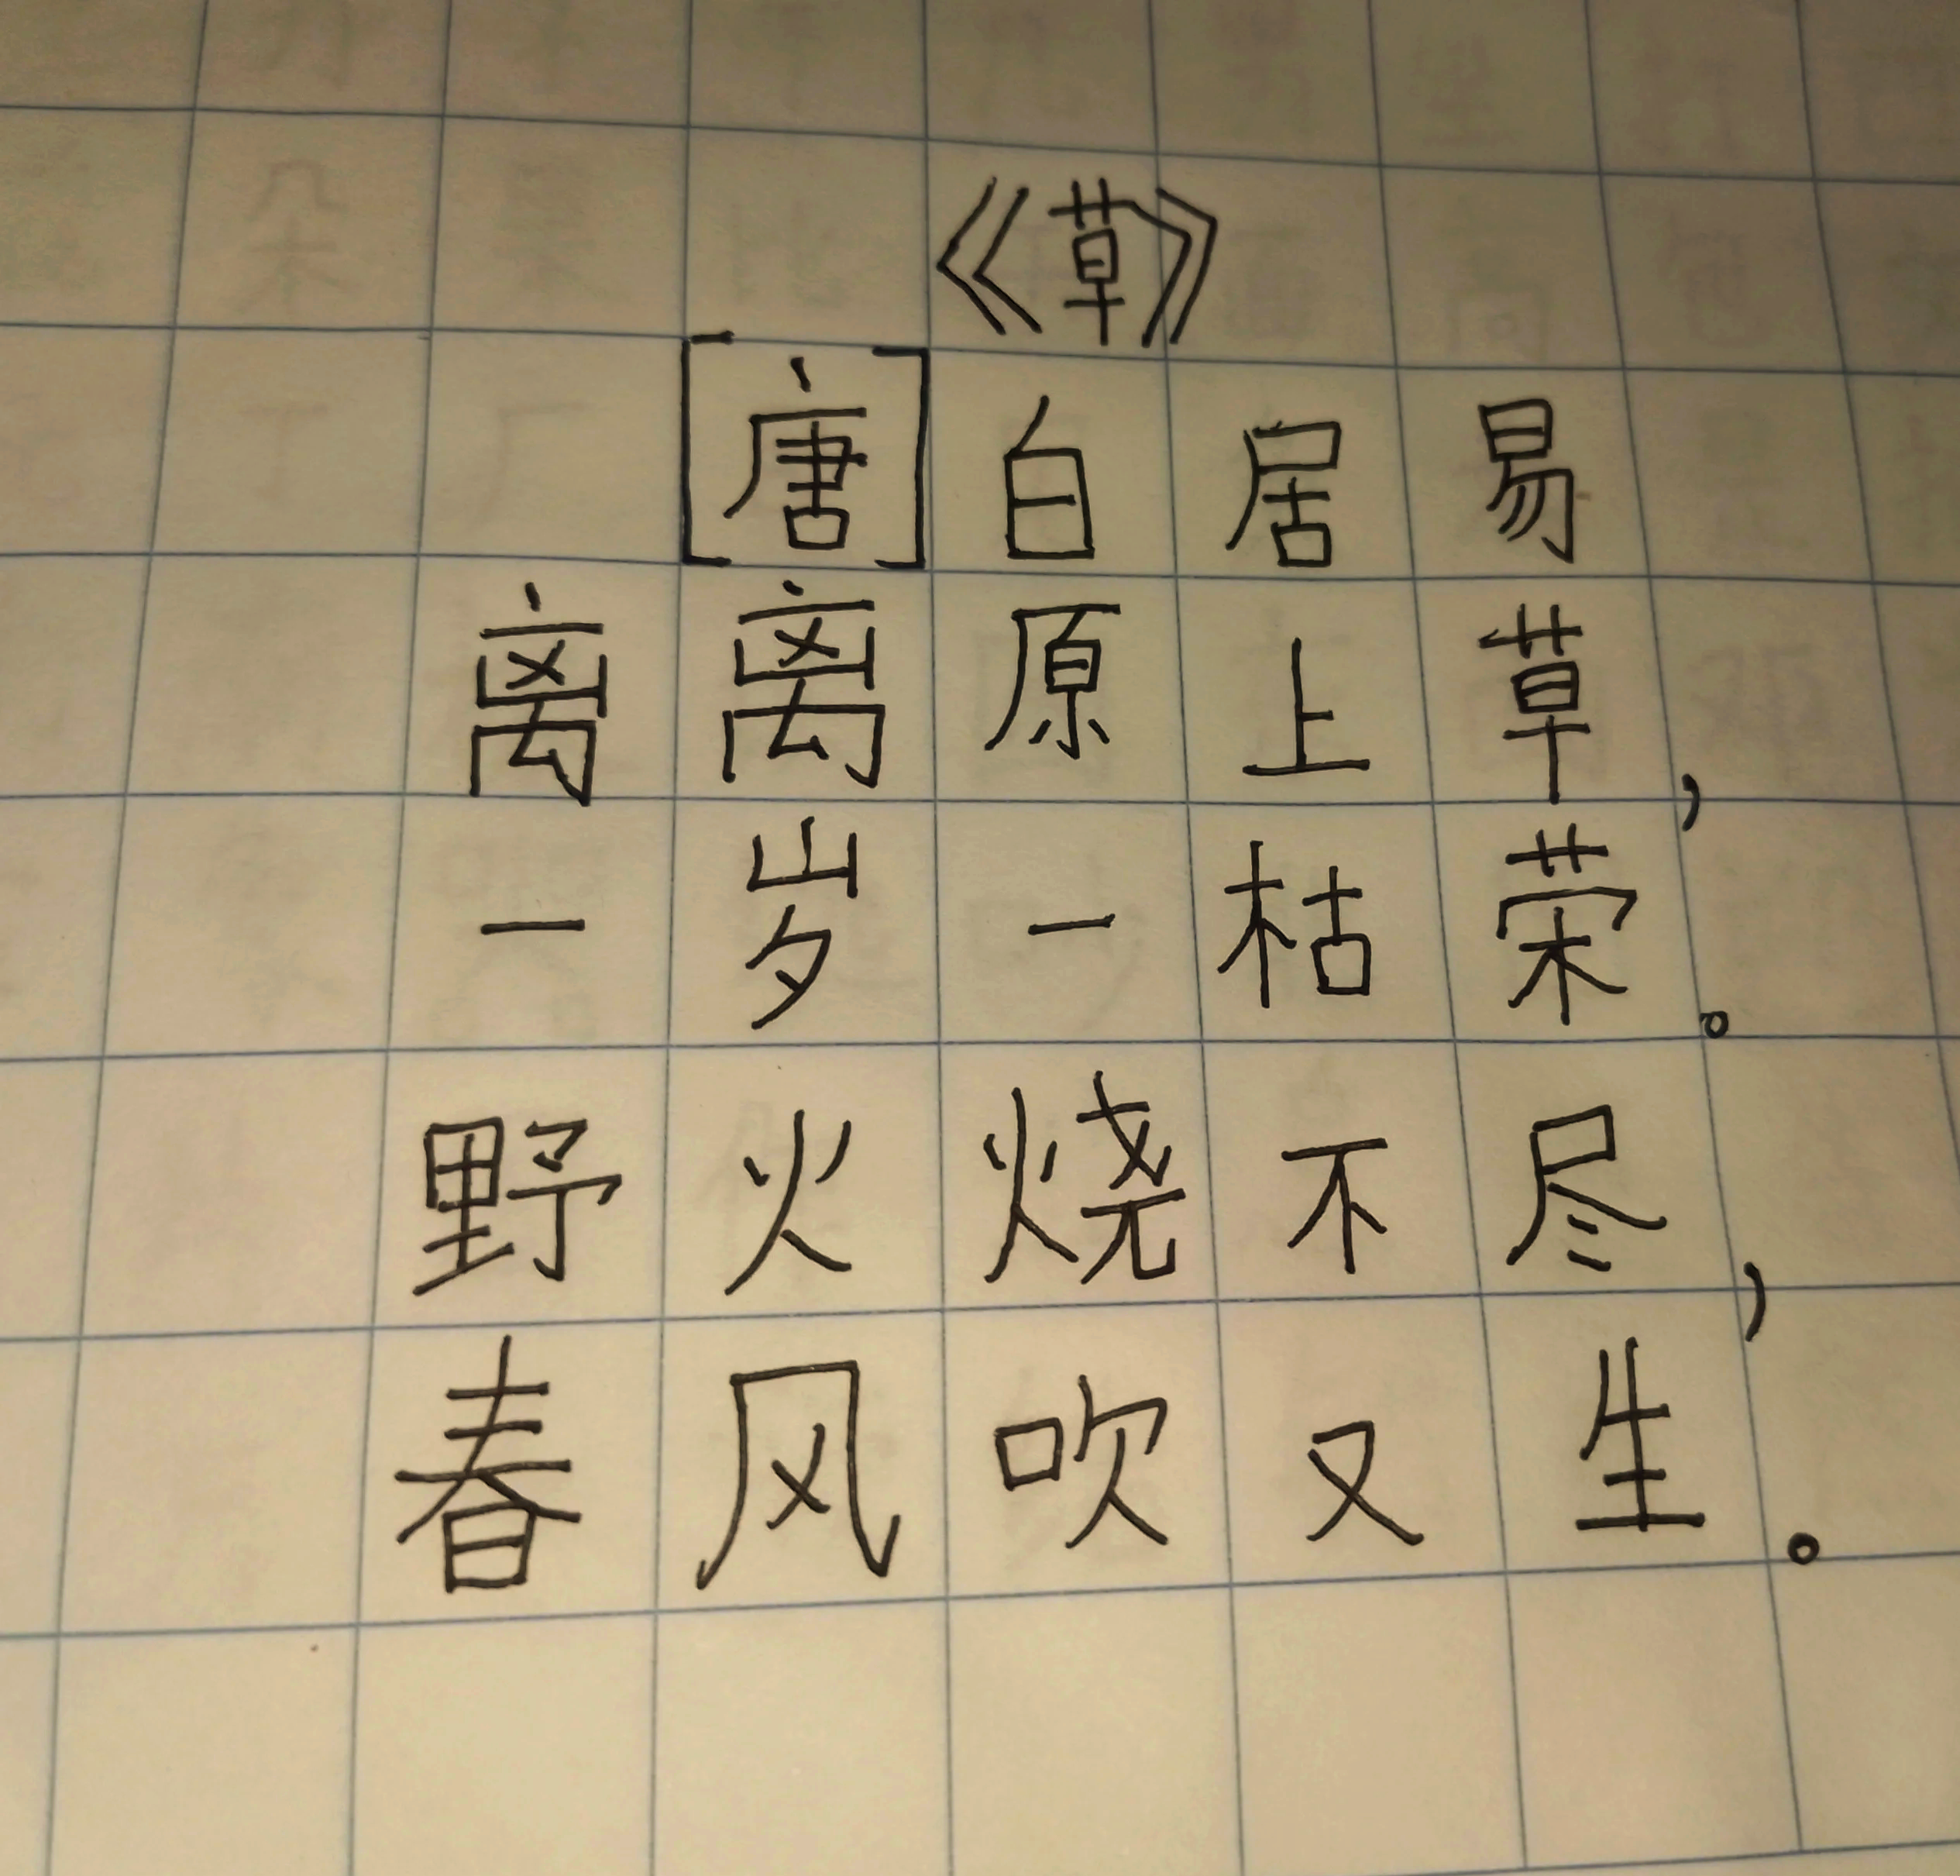 《草》
[唐]白居易
离离原上草，
一岁一枯荣。
野火烧不尽，
春风吹又生。